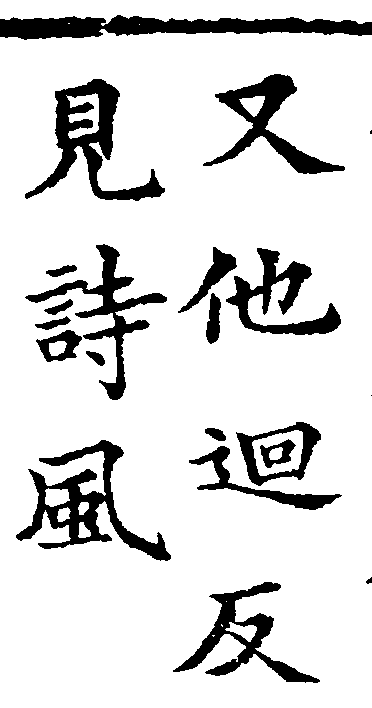 又他迴反
見詩風